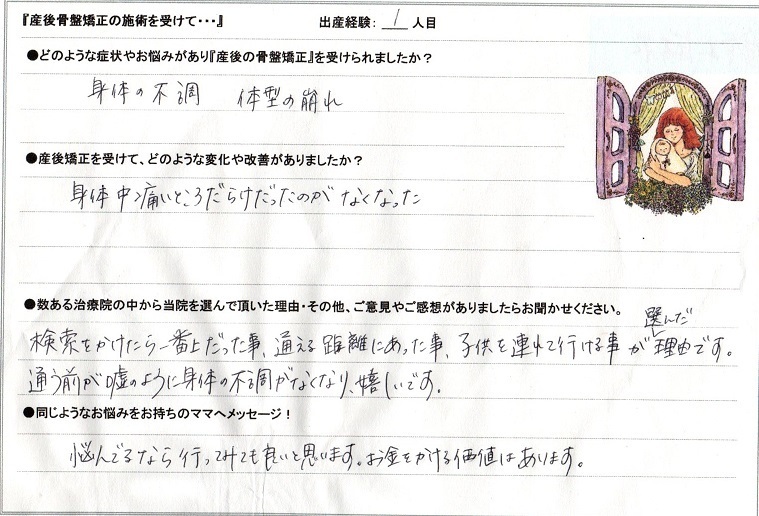 『産後骨盤矯正の施術を受けて・・・』 出産経験： 1 人目
●どのような症状やお悩みがあり『産後の骨盤矯正』を受けられましたか？
身体の不調 体型の崩れ
●産後矯正を受けて、どのような変化や改善がありましたか？
身体中痛いところだらけだったのがなくなった
●数ある治療院の中から当院を選んで頂いた理由・その他、ご意見やご感想がありましたらお聞かせください。
選んだ
検索をかけたら一番上だった事、通える距離にあった事、子供を連れて行ける事が理由です。
通う前が嘘のように身体の不調がなくなり、嬉しいです。
●同じようなお悩みをお持ちのママへメッセージ！
悩んでるなら行ってみても良いと思います。お金をかける価値はあります。